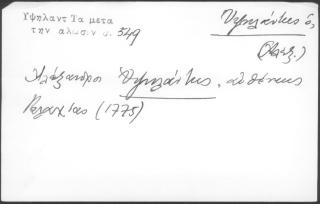 Υψηλαντ Τα μετα
την αλωσιν σ. 349
Υψηλάντης ὁ,
(Ἀλέξ.)
Ἀλέξανδρος Ὑψηλάντης, αὐθέντης
Βλαχίας (1775)